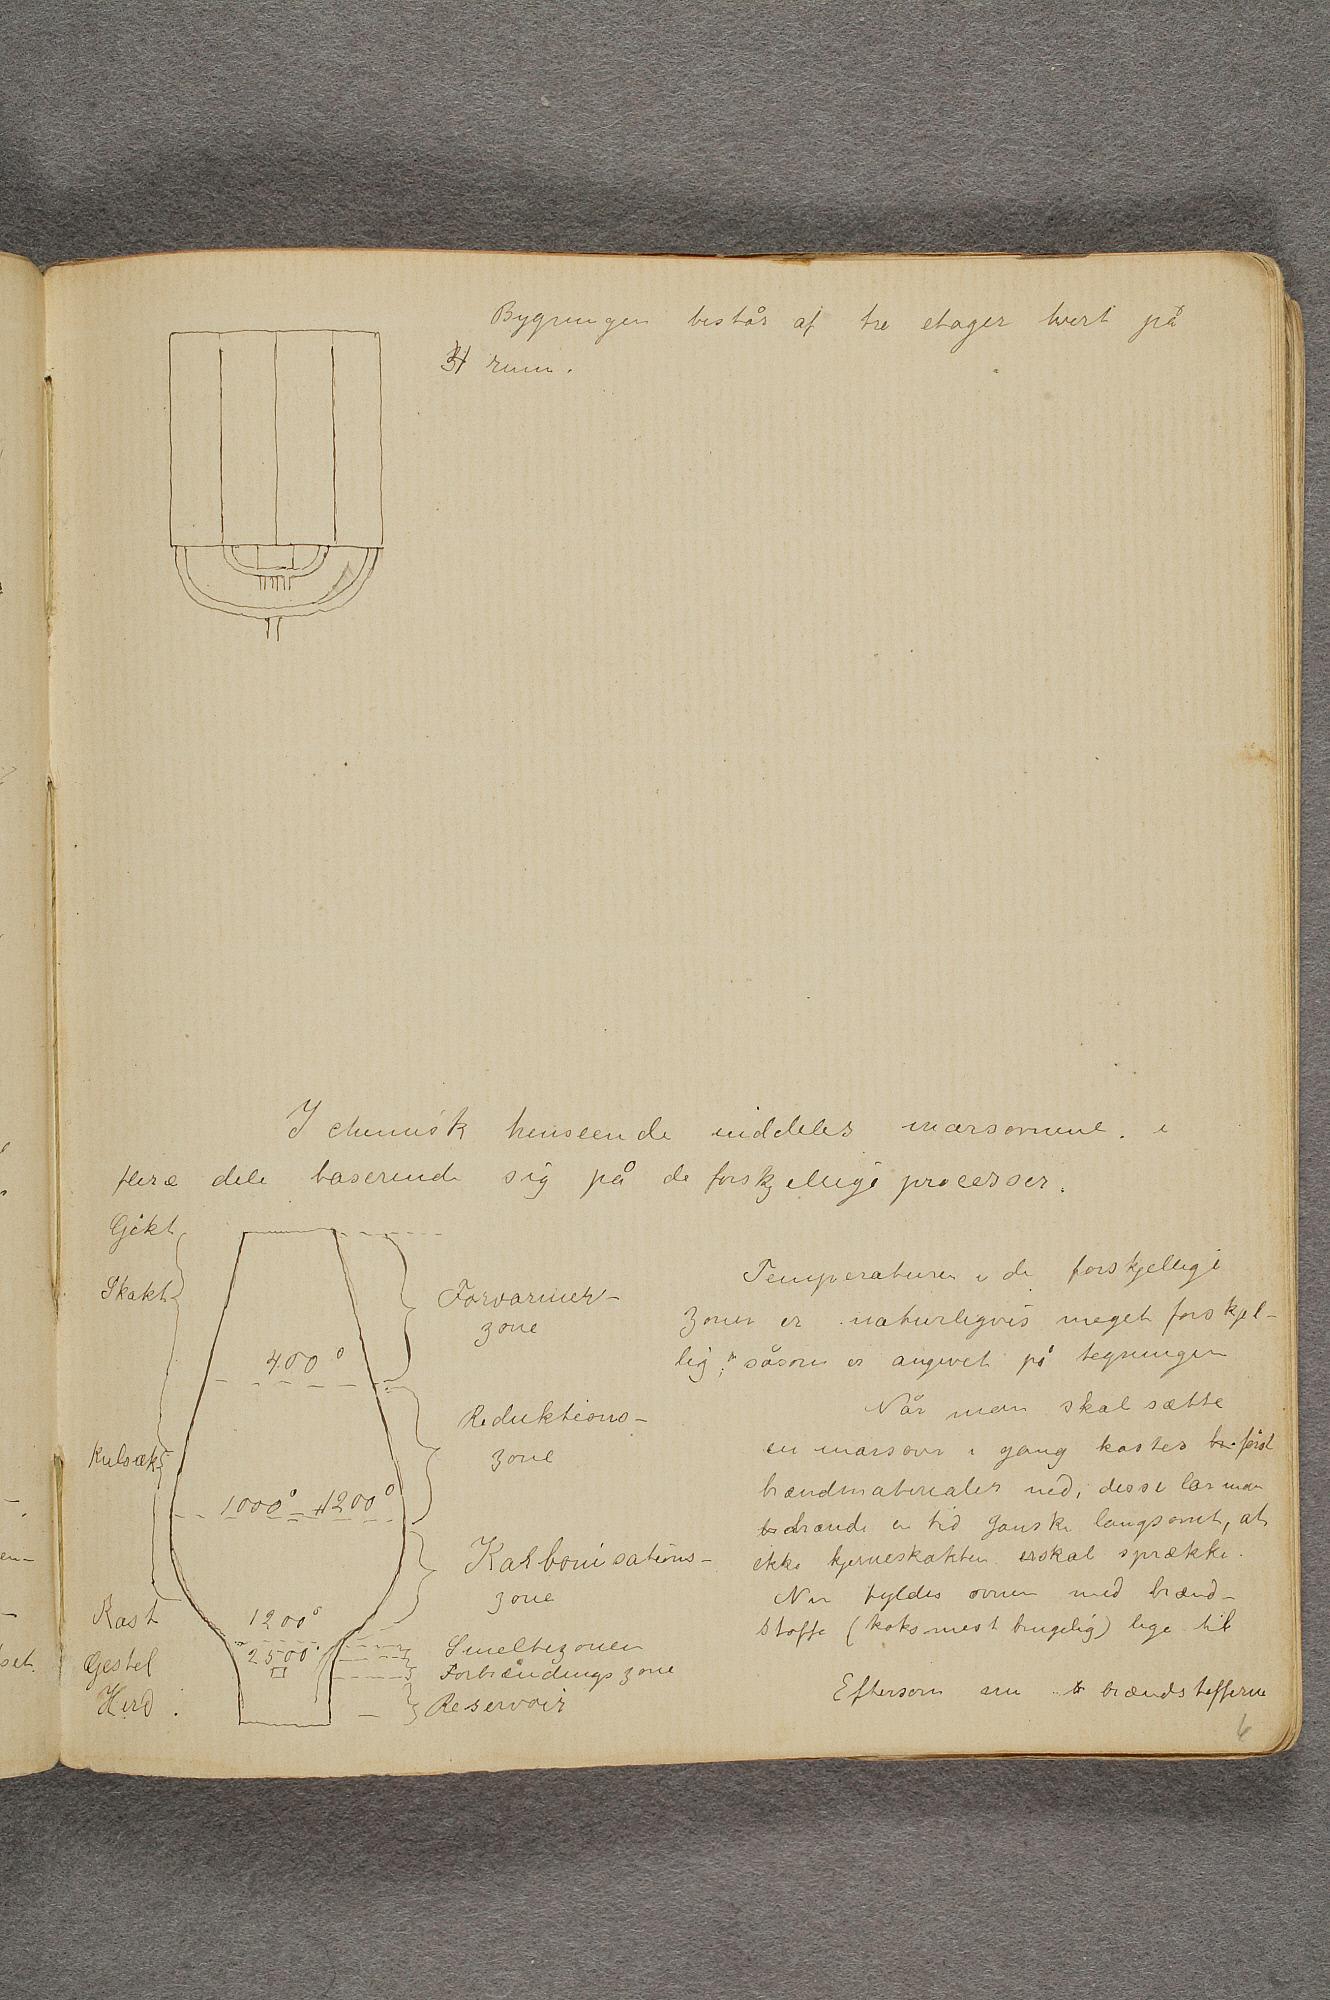 Bygningen består af tre etager hvert på
34 rum.
I chemisk henseende inddeles marsovnene. i
flere dele baserende sig på de forskjellige processer.
Gikt
Skakt
Kulsæk
Rast
Gestel
Herd.
400°
1000° - 1200°
1200°
2500°
Forvarmer-
zone
Reduktions-
zone
Karbonisations-
zone
Smeltezonen
Forbrændings zone
Reservoir
Temperaturen i de forskjellige
zoner er naturligvis meget forskjel-
lig, såsom er angivet på tegningen
Når man skal sætte
en marsovn i gang kastes først
brændmaterialer ned, disse lar man
brænde en tid ganske langsomt, at
ikke kjerneskakten skal sprække.
Nu fyldes ovnen med brænd-
stoffe (koks mest brugelig) lige til
Eftersom nu brændstofferne
6